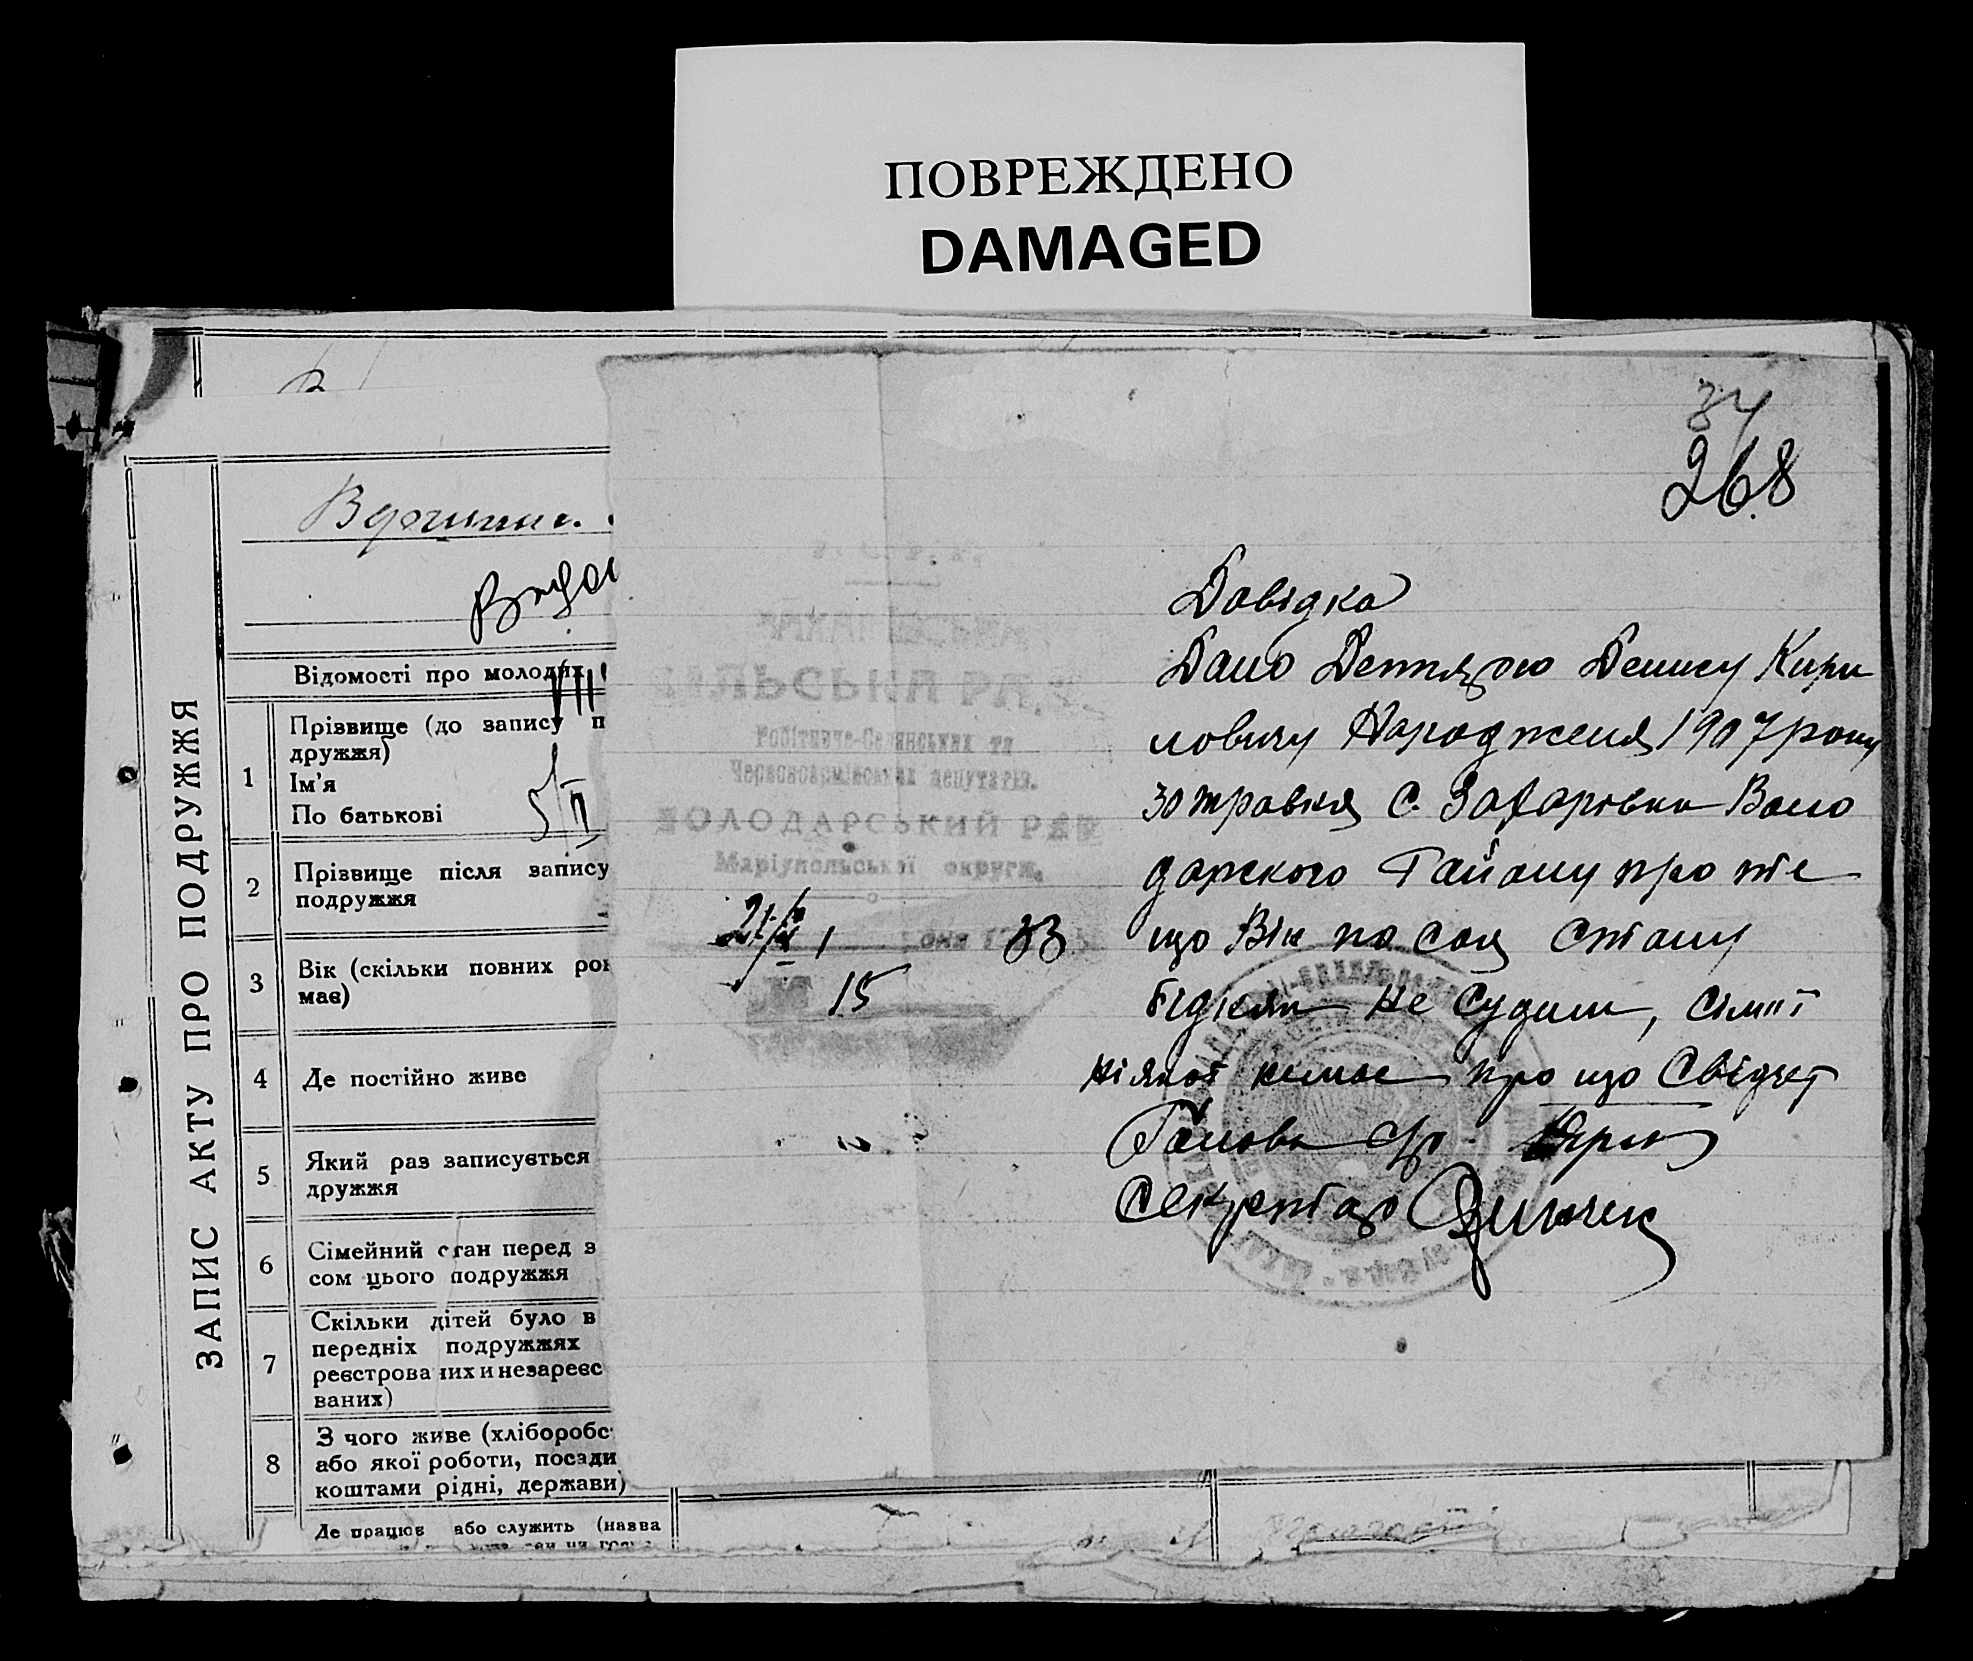 ПОВРЕЖДЕНО
DAMAGED
34
268
Відомості про молодих
VIII
ЗАПИС АКТУ ПРО ПОДРУЖЖЯ
1
Прізвище (до запису п
дружжя)
Ім'я
По батькові
5/II
2
Прізвище після запису
подружжя
3
Вік (скільки повних рок
має)
4
Де постійно живе
5
Який раз записується
дружжя
6
Сімейний стан перед з
сом цього подружжя
7
Скільки дітей було в
передніх подружжях
реєстрованих и незареєс
ваних)
8
З чого живе (хліборобс
або якої роботи, посади
коштами рідні, держави)
Де працює або служить (назва
СІЛЬСЬКА РАДА
Робітниче-Селянських та
Червоноармійських депутатів.
ВОЛОДАРСЬКИЙ РАЙ
Маріупольської округи.
дня 33
№ 15
Довідка
Дано Дегтярю Денису Кири
ловичу Народженя 1907 року
30 травня С. Захарівка Воло
дарского Району про те
що Він по соц стану
бідняк не судим, сімії
ніякої немає про що Свідчет
Голова с/р
Секретар